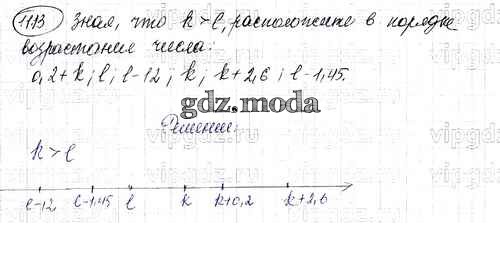 1113 Зная, что k > l, расположите в порядке
возрастания числа:
0,2+k; l; l-12; k; k+2,6; l-1,45.
gdz.moda
Решение:
k > l
l-12 l-1,45 l k k+0,2 k+2,6
vipgdz.ru